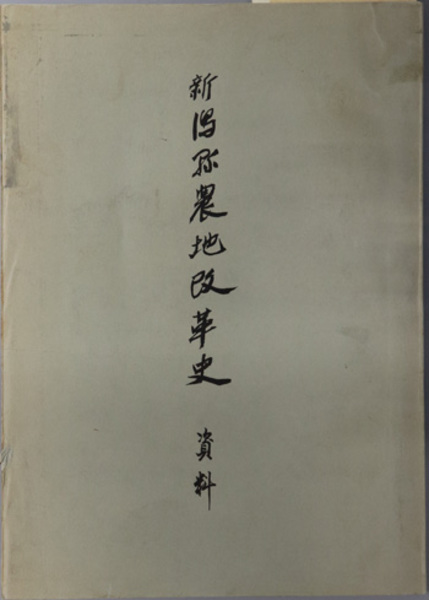 新潟縣農地改革史 資料